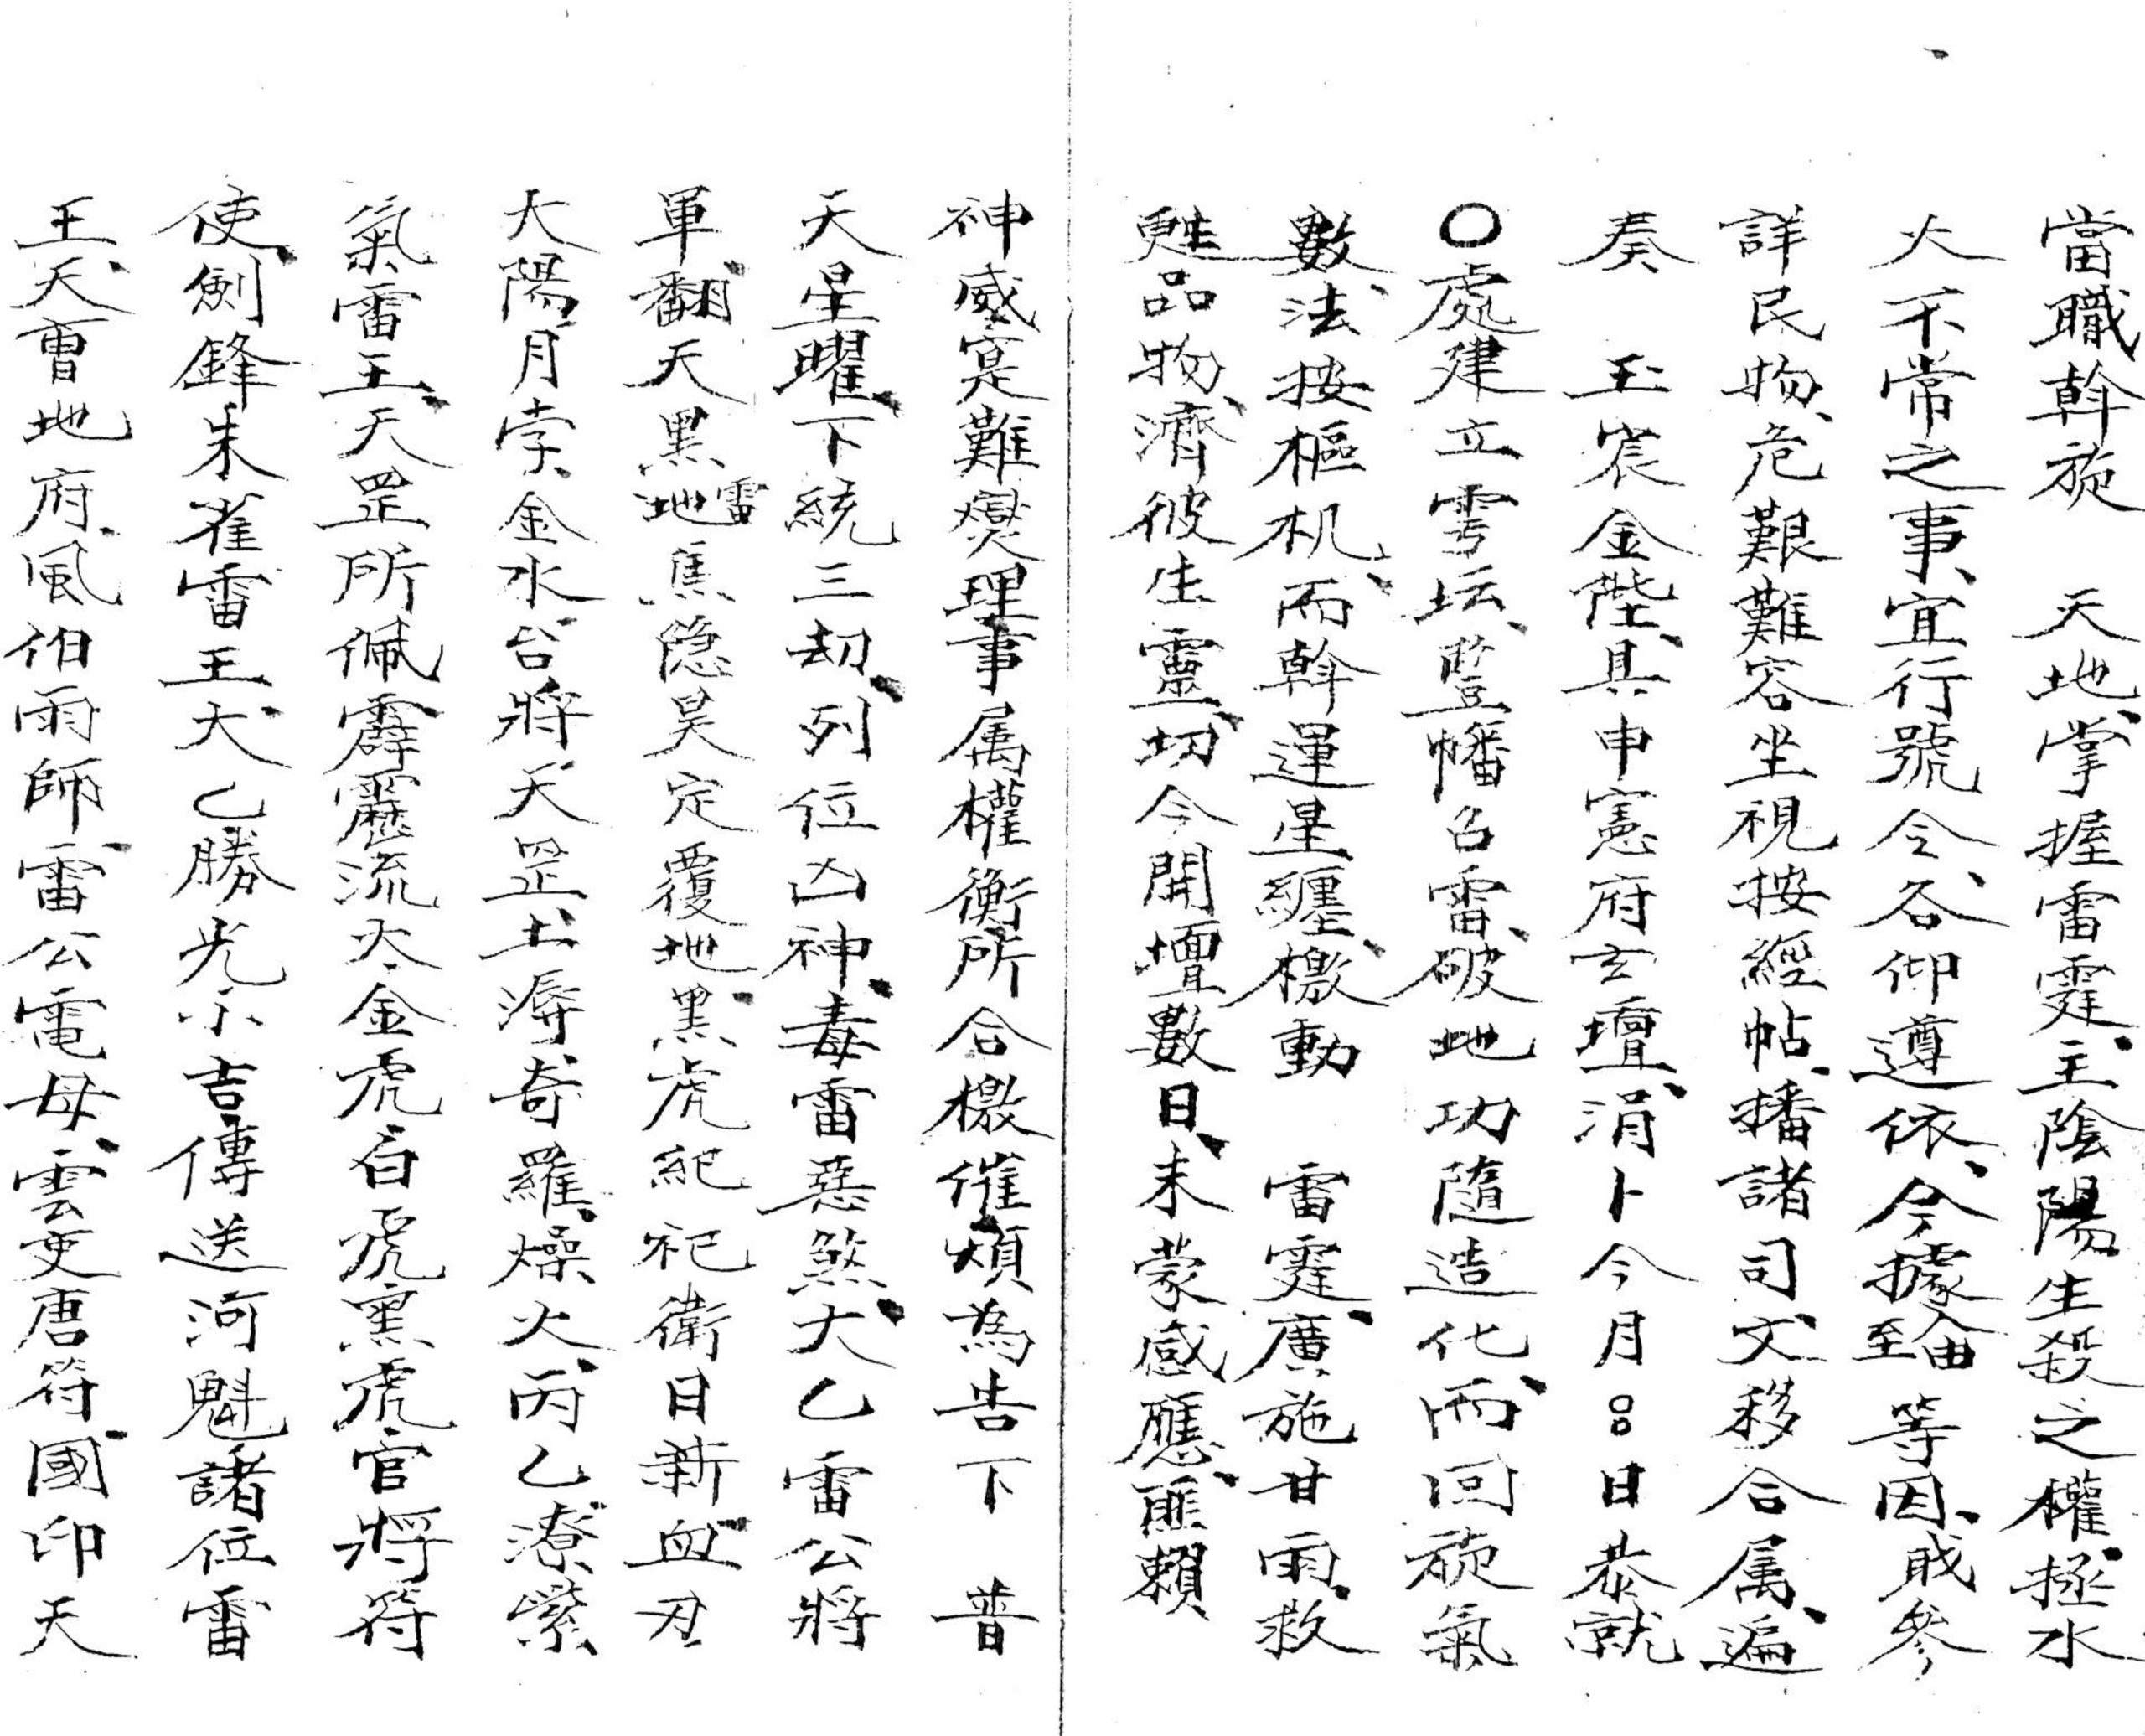 當職斡旋　天地、掌握雷霆、主陰陽生殺之權、拯水
火不常之事、宜行號令、各仰遵依、今據　等因、戝參
詳民物、危艱難容坐視按經帖、播諸司文移合属、遍
奏　玉宸金陛、具申憲府玄壇、涓卜今月〇〇日恭就
〇處建立雩坛、豎幡召雷、破地功隨造化、而回旋氣
數、法按樞机、而斡運星纏、檄動　雷霆、廣施甘雨、救
甦品物、濟彼生靈、切今開壇數日、未蒙感應、匪賴
神威寔難燮理事属權衡所合檄催煩為告下　普
天星曜、下統三劫、列位凶神、毒雷惡煞、大乙雷公將
軍翻天黑地雷焦隐昊定覆地、黑虎紀祀衛日新血刃
大陽、月孛金水台將天罡土溽奇羅、燥火、丙乙潦紫
氣雷王、天罡所佩霹靂流火金虎白虎黑虎官將符
使、劍鋒朱雀雷王大乙勝光小吉傳送河魁諸位雷
王、天曹地府、風伯雨師、雷公電母、雲吏唐符、國印天